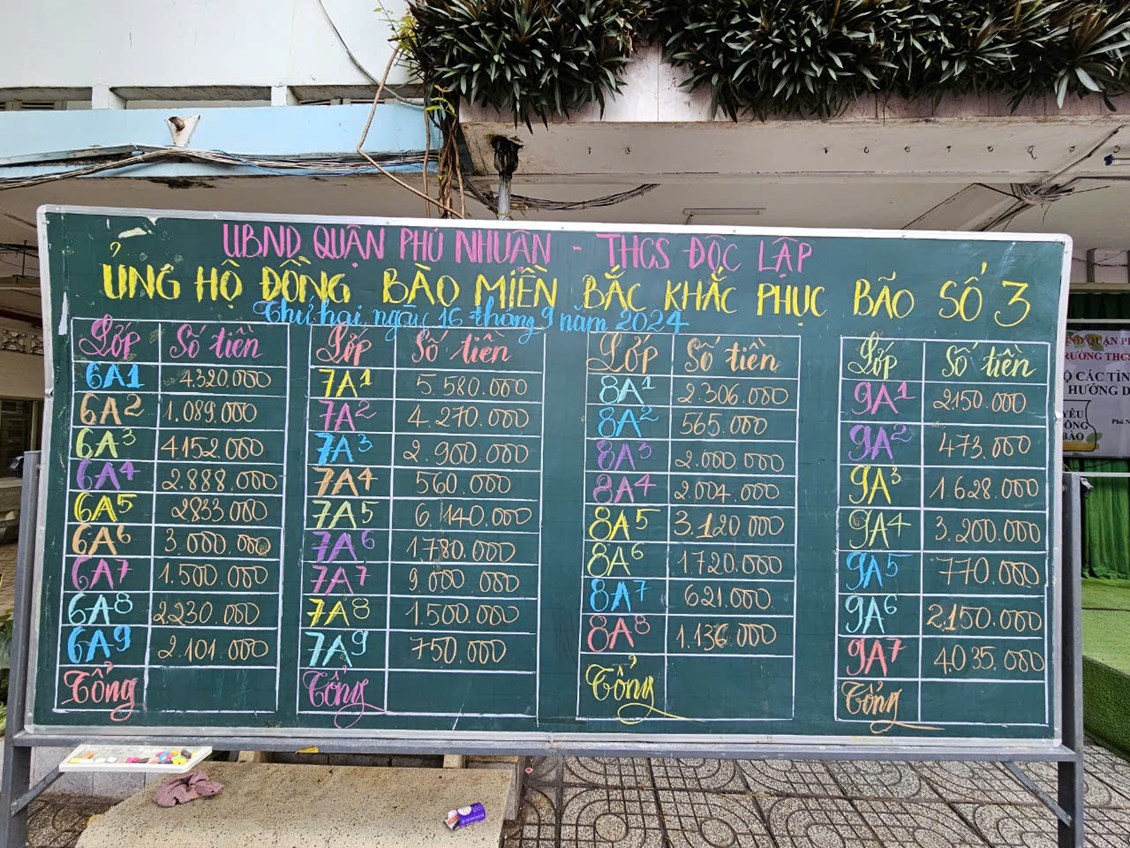 UBND QUẬN PHÚ NHUẬN - THCS ĐỘC LẬP
ỦNG HỘ ĐỒNG BÀO MIỀN BẮC KHẮC PHỤC BÃO SỐ 3
Thứ hai, ngày 16 tháng 9 năm 2024
Lớp Số tiền
6A1 4.320.000
6A2 1.089.000
6A3 4.152.000
6A4 2.888.000
6A5 2833.000
6A6 3.000.000
6A7 1.500.000
6A8 2.230.000
6A9 2.101.000
Tổng
Lớp Số tiền
7A1 5.580.000
7A2 4.270.000
7A3 2.900.000
7A4 560.000
7A5 6.140.000
7A6 1.780.000
7A7 9.000.000
7A8 1.500.000
7A9 750.000
Tổng
Lớp Số tiền
8A1 2.306.000
8A2 565.000
8A3 2.000.000
8A4 2.004.000
8A5 3.120.000
8A6 1.720.000
8A7 621.000
8A8 1.136.000
Tổng
Lớp Số tiền
9A1 2.150.000
9A2 473.000
9A3 1.628.000
9A4 3.200.000
9A5 770.000
9A6 2.150.000
9A7 4.035.000
Tổng
QUẬN
TRƯỜNG THCS
CÁC
HƯỚNG
YÊU